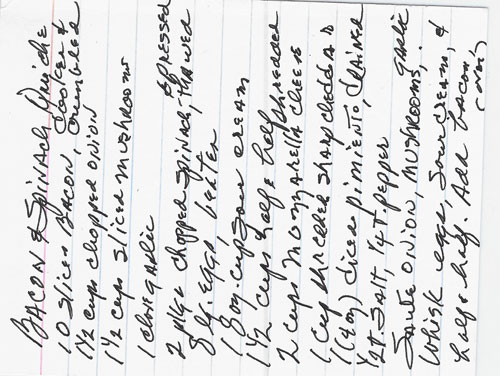 BACON & SPINACH Quiche
10 slices BACON, Cooked & Crumbled
1½ cups chopped ONION
1½ cups sliced mushrooms
1 clove garlic
2 pkgs chopped spinach, thawed & pressed
8 lg. eggs, beaten
1 8oz. cup sour cream
1½ cups half & half
2 cups mozzarella cheese shredded
1 cup shredded sharp cheddar
1 (4oz) diced pimiento, drained
½ t salt, ¼ t. pepper
Sauté onion, mushrooms, garlic
Whisk eggs, sour cream, &
half & half. Add bacon,
(over)